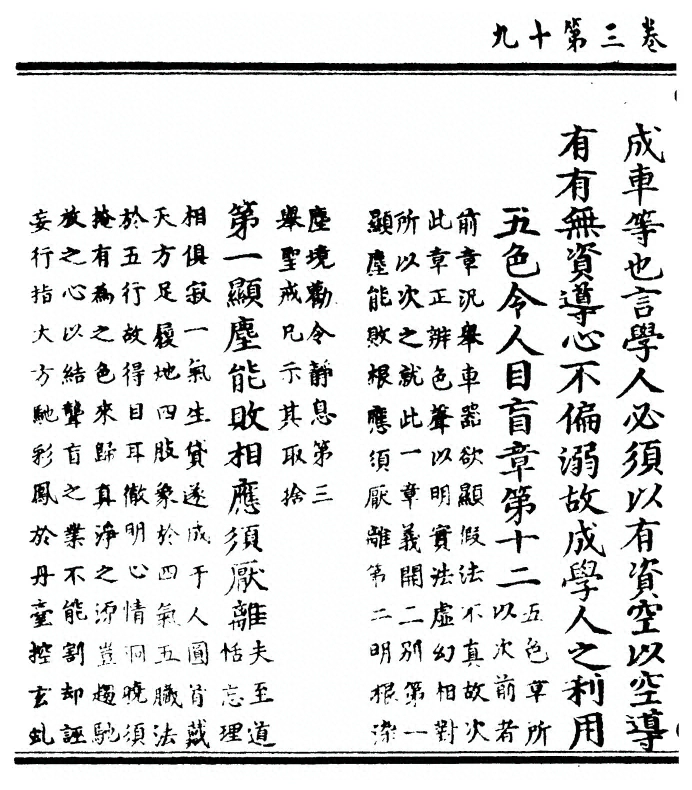 卷三第十九
成車等也言學人必須以有資空以空導
有有無資導心不偏溺故成學人之利用
五色令人目盲章第十二五色章所
以次前者
前章汎舉車器欲顯假法不真故次
此章正辨色聲以明實法虛幻相對
所以次之就此一章義開二別第一
顯塵能敗根應須厭離第二明根染
塵境勸令靜息第三
舉聖戒凡示其取捨
第一顯塵能敗相應須厭離夫至道
恬忘理
相俱寂一氣生貸遂成于人圓首戴
天方足履地四肢象於四氣五臟法
於五行故得目耳徹明心情洞曉須
掩有為之色來歸真淨之源豈趨馳
放之心以結聾盲之業不能割却誣
妄行指大方馳彩鳳於丹臺控玄虬